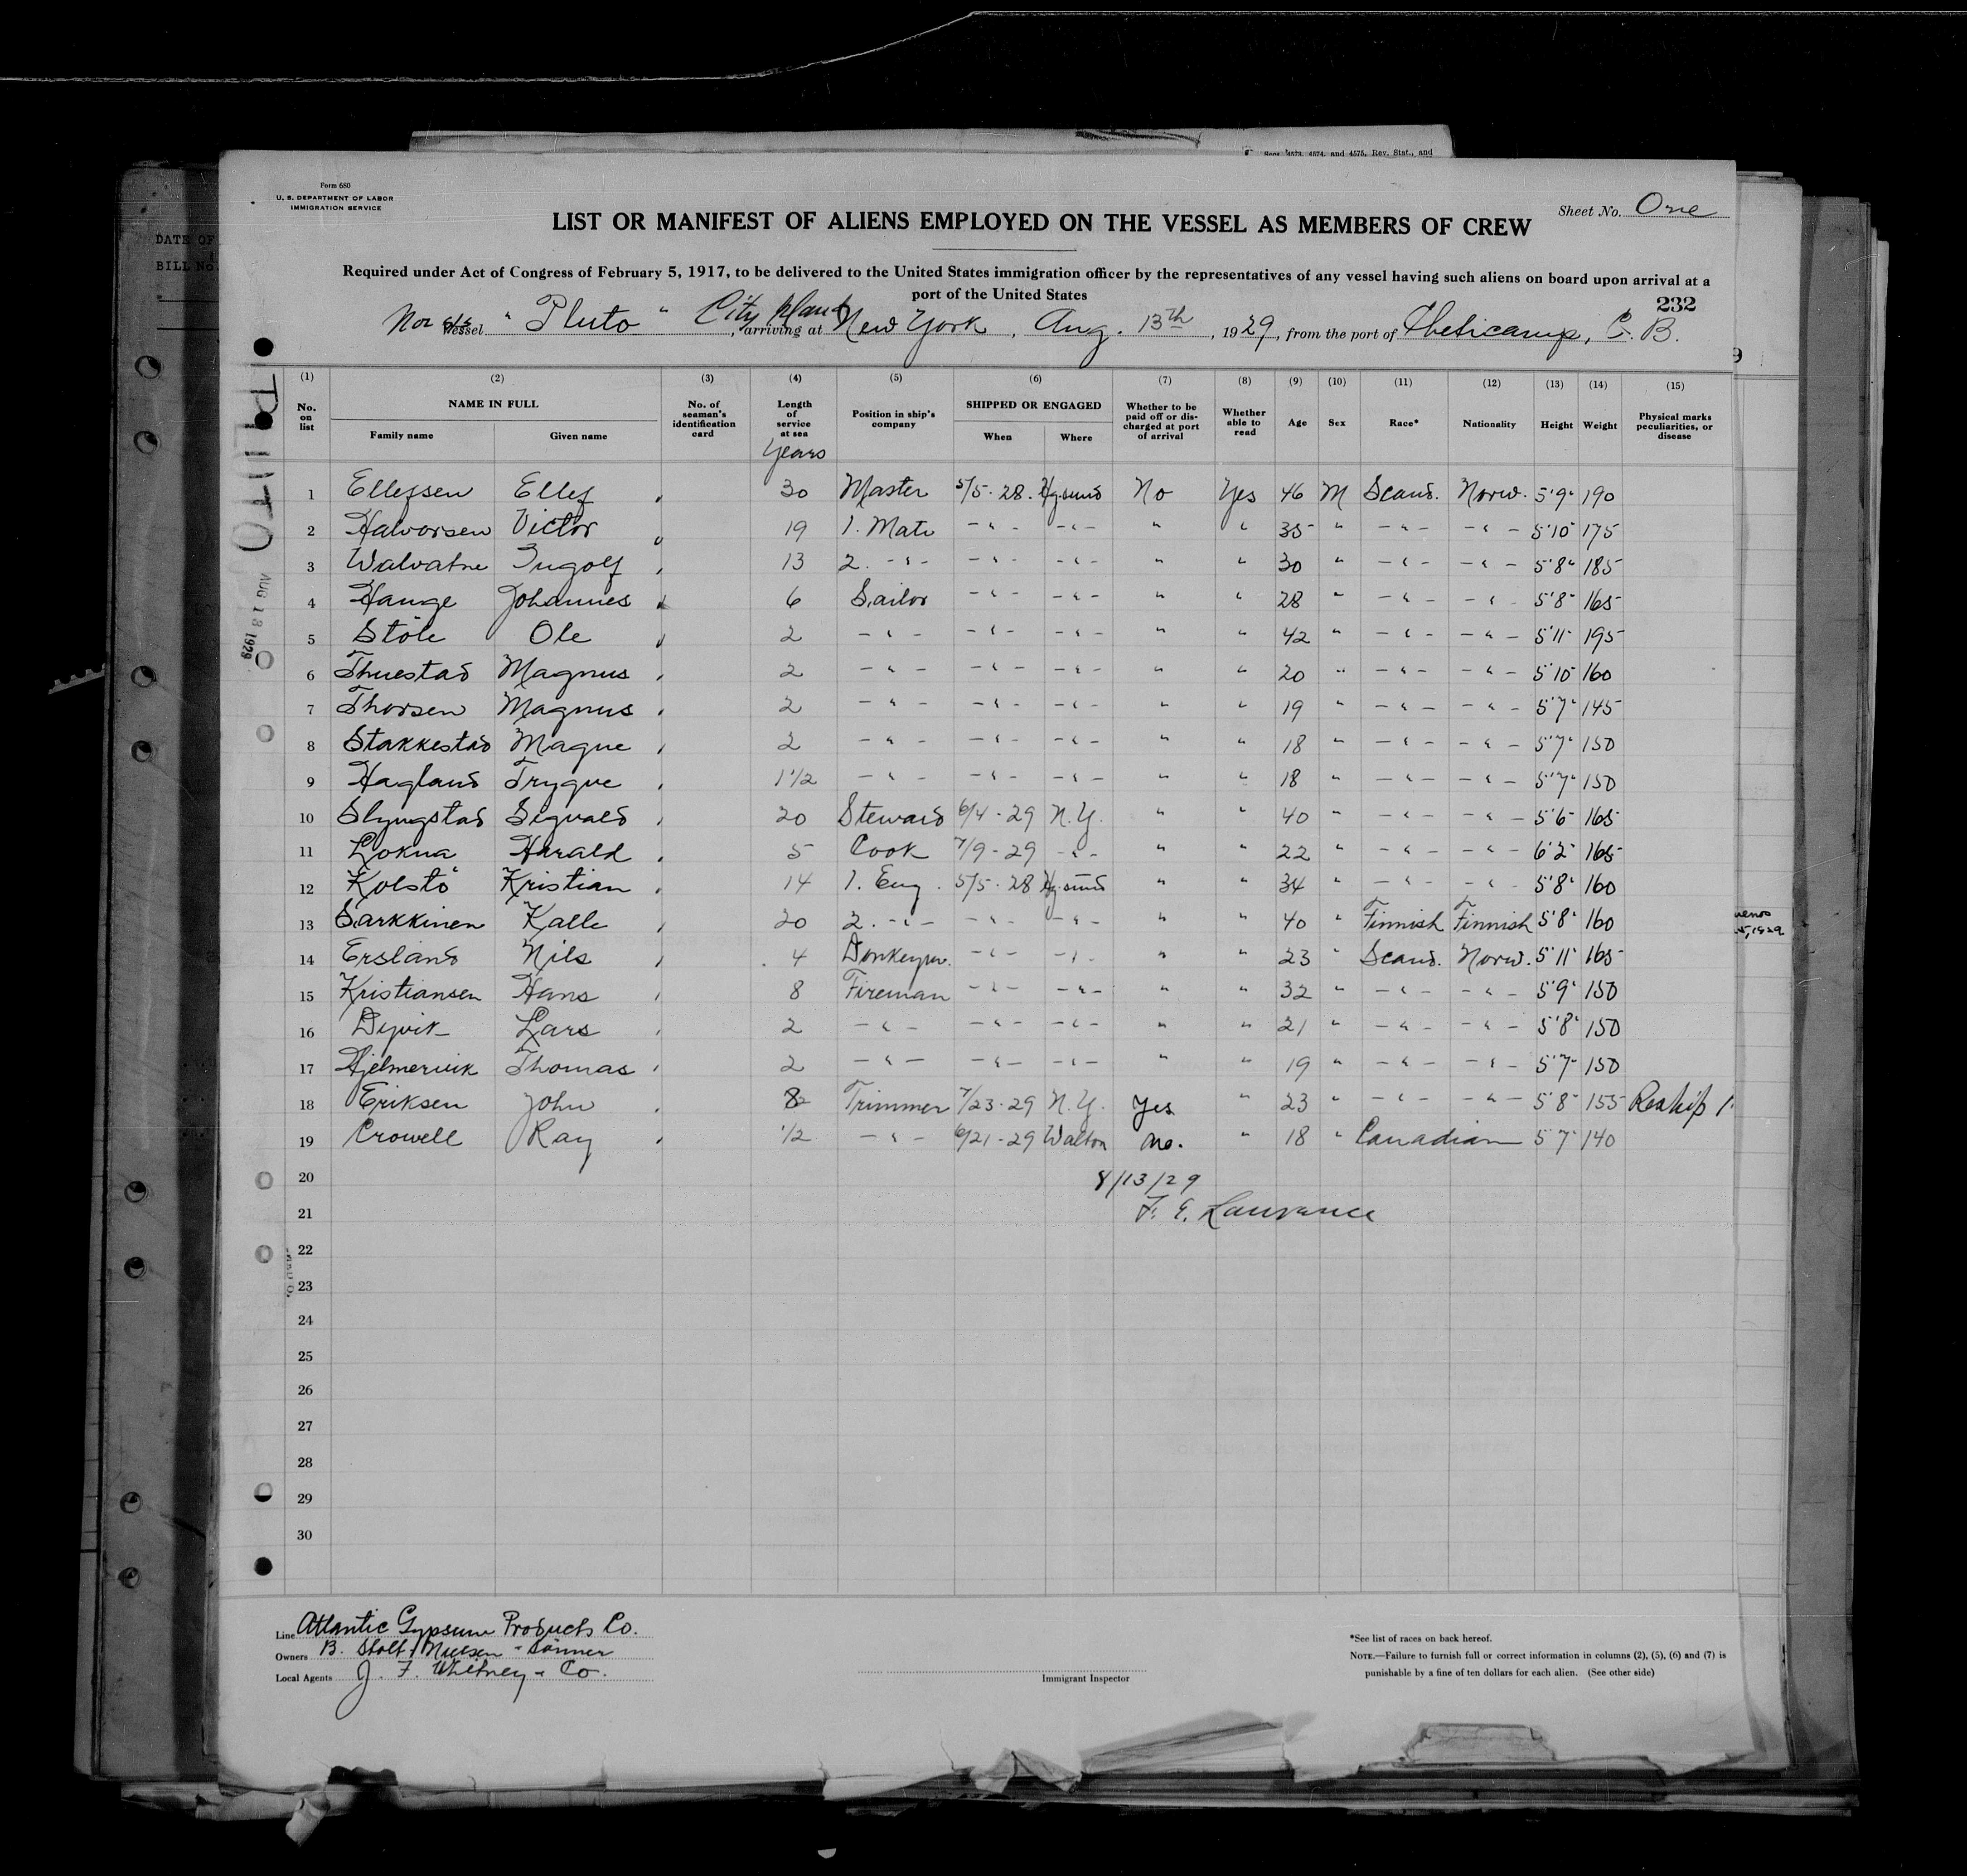 Secs. 4573, 4574, and 4575, Rev. Stat., and
Form 680
U. S. DEPARTMENT OF LABOR
IMMIGRATION SERVICE
Sheet No. One
LIST OR MANIFEST OF ALIENS EMPLOYED ON THE VESSEL AS MEMBERS OF CREW
Required under Act of Congress of February 5, 1917, to be delivered to the United States immigration officer by the representatives of any vessel having such aliens on board upon arrival at a
port of the United States
232
Nor s/s Vessel "Pluto" City Island, arriving at New York, Aug. 13th, 1929, from the port of Cheticamp, C. B.
DATE OF
BILL No.
PLUTO
AUG 13 1929
(1) (2) (3) (4) (5) (6) (7) (8) (9) (10) (11) (12) (13) (14) (15)
No. on list NAME IN FULL Family name Given name No. of seaman's identification card Length of service at sea Position in ship's company SHIPPED OR ENGAGED When Where Whether to be paid off or discharged at port of arrival Whether able to read Age Sex Race* Nationality Height Weight Physical marks peculiarities, or disease
Years
1 Ellefsen Ellef 30 Master 5/5-28. Hg.sund No Yes 46 M Scand. Norw. 5'9" 190
2 Halvorsen Victor 19 1. Mate -"- -"- " " 35 " -"- -"- 5'10" 175
3 Walvatne Ingolf 13 2. -"- -"- -"- " " 30 " -"- -"- 5'8" 185
4 Hauge Johannes 6 Sailor -"- -"- " " 28 " -"- -"- 5'8" 165
5 Stöle Ole 2 -"- -"- -"- " " 42 " -"- -"- 5'11" 195
6 Thuestad Magnus 2 -"- -"- -"- " " 20 " -"- -"- 5'10" 160
7 Thorsen Magnus 2 -"- -"- -"- " " 19 " -"- -"- 5'7" 145
8 Stakkestad Magne 2 -"- -"- -"- " " 18 " -"- -"- 5'7" 150
9 Hagland Trygve 1 1/2 -"- -"- -"- " " 18 " -"- -"- 5'7" 150
10 Slyngstad Sigvald 20 Steward 6/4-29 N.Y. " " 40 " -"- -"- 5'6" 165
11 Lokna Harald 5 Cook 7/9-29 -"- " " 22 " -"- -"- 6'2" 165
12 Kolstö Kristian 14 1. Eng. 5/5-28 Hg.sund " " 34 " -"- -"- 5'8" 160
13 Sarkkinen Kalle 20 2. -"- -"- -"- " " 40 " Finnish Finnish 5'8" 160
14 Ersland Nils 4 Donkeym. -"- -"- " " 23 " Scand. Norw. 5'11" 165
15 Kristiansen Hans 8 Fireman -"- -"- " " 32 " -"- -"- 5'9" 150
16 Dyvik Lars 2 -"- -"- -"- " " 21 " -"- -"- 5'8" 150
17 Hjelmervik Thomas 2 -"- -"- -"- " " 19 " -"- -"- 5'7" 150
18 Eriksen John 8 Trimmer 7/23-29 N.Y. Yes " 23 " -"- -"- 5'8" 155 Reship
19 Crowell Ray 1/2 -"- 6/21-29 Walton no. " 18 " Canadian 5'7" 140
20 8/13/29
21 F. E. Laurance
22
23
24
25
26
27
28
29
30
Line Atlantic Gypsum Products Co.
Owners B. Stolt Nielsen & Sönner
Local Agents J. F. Whitney & Co.
Immigrant Inspector
*See list of races on back hereof.
NOTE.—Failure to furnish full or correct information in columns (2), (5), (6) and (7) is
punishable by a fine of ten dollars for each alien. (See other side)